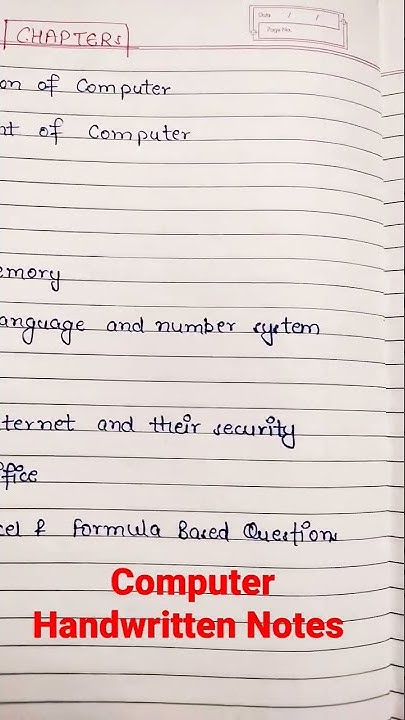 Date / /
Page No.
CHAPTERS
on of Computer
nt of Computer
emory
anguage and number system
ternet and their security
ffice
cel & Formula Based Questions
Computer
Handwritten Notes